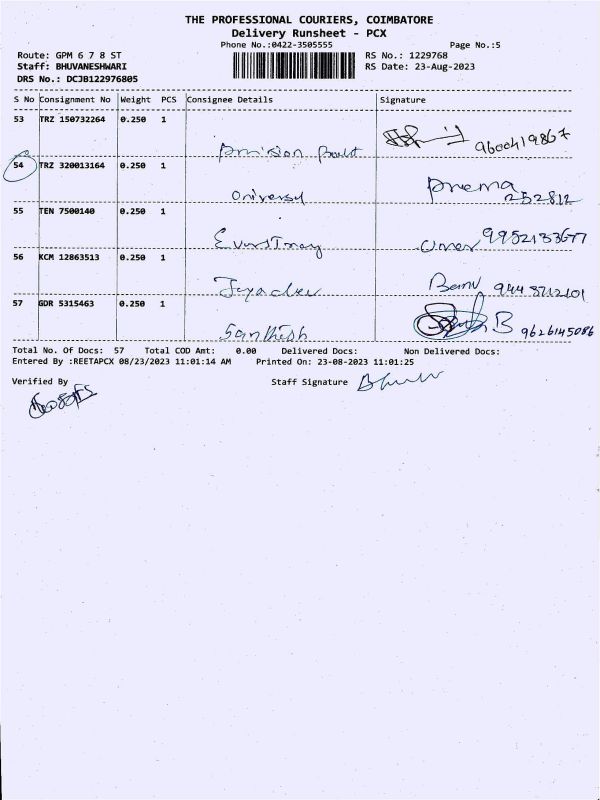 THE PROFESSIONAL COURIERS, COIMBATORE
Delivery Runsheet - PCX
Phone No.:0422-3505555 Page No.:5
Route: GPM 6 7 8 ST RS No.: 1229768
Staff: BHUVANESHWARI RS Date: 23-Aug-2023
DRS No.: DCJB122976805
S No Consignment No Weight PCS Consignee Details Signature
53 TRZ 150732264 0.250 1
9600419867
54 TRZ 320013164 0.250 1
Universal Prema 252812
55 TEN 7500140 0.250 1
9952133677
56 KCM 12863513 0.250 1
Jayadev Banu
57 GDR 5315463 0.250 1
Santhish B 9626145086
Total No. Of Docs: 57 Total COD Amt: 0.00 Delivered Docs: Non Delivered Docs:
Entered By :REETAPCX 08/23/2023 11:01:14 AM Printed On: 23-08-2023 11:01:25
Verified By Staff Signature